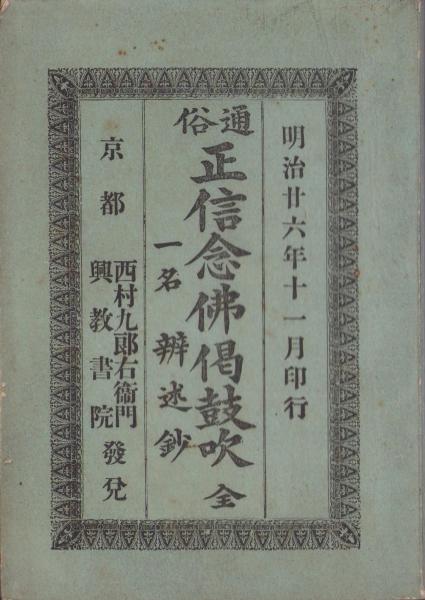 明治廿六年十一月印行
通俗
正信念佛偈鼓吹 全
一名 辨述鈔
京都
西村九郎右衞門
興教書院
發兌